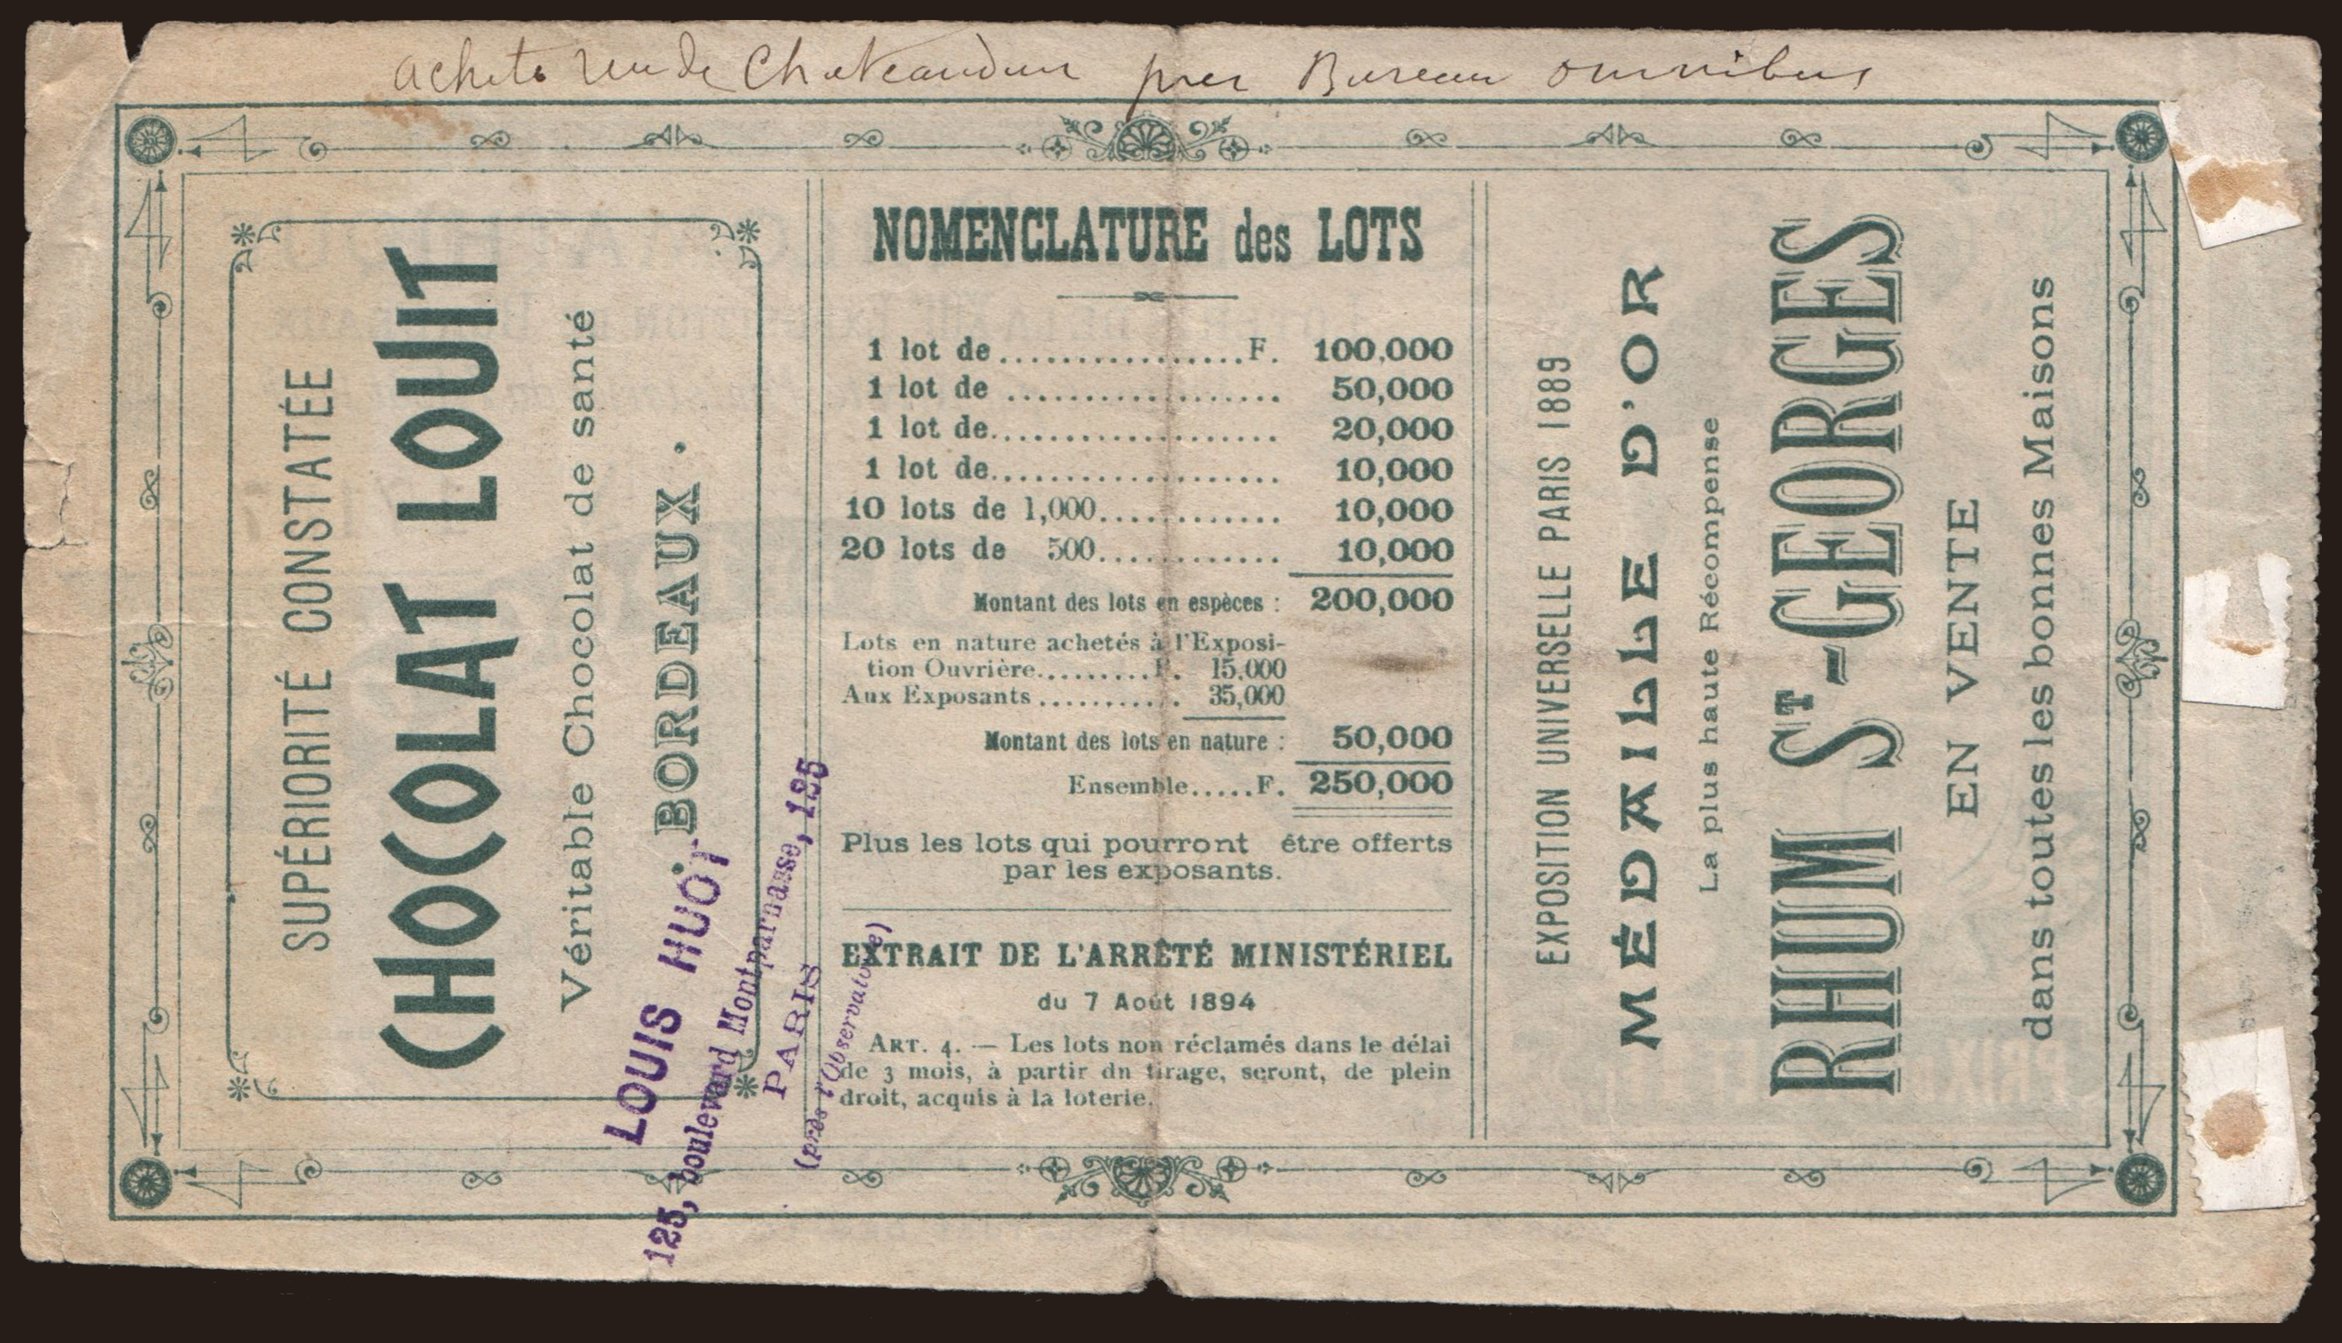 achete rue de Chateaudun pres Bureau omnibus
SUPÉRIORITÉ CONSTATÉE
CHOCOLAT LOUIT
Véritable Chocolat de santé
. BORDEAUX .
LOUIS HUOT
125, boulevard Montparnasse, 125
PARIS
(près l'Observatoire)
NOMENCLATURE des LOTS
1 lot de................F. 100,000
1 lot de .................. 50,000
1 lot de................... 20,000
1 lot de................... 10,000
10 lots de 1,000............ 10,000
20 lots de 500............ 10,000
Montant des lots en espèces : 200,000
Lots en nature achetés à l'Exposi-
tion Ouvrière.........F. 15,000
Aux Exposants........... 35,000
Montant des lots en nature : 50,000
Ensemble.....F. 250,000
Plus les lots qui pourront être offerts
par les exposants.
EXTRAIT DE L'ARRÊTÉ MINISTÉRIEL
du 7 Août 1894
ART. 4. — Les lots non réclamés dans le délai
de 3 mois, à partir dn tirage, seront, de plein
droit, acquis à la loterie.
EXPOSITION UNIVERSELLE PARIS 1889
MÉDAILLE D'OR
La plus haute Récompense
RHUM ST-GEORGES
EN VENTE
dans toutes les bonnes Maisons